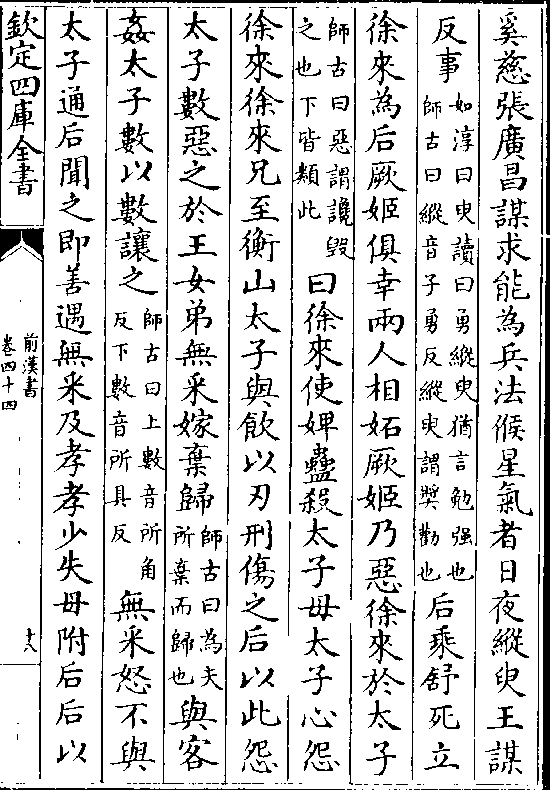 奚慈張廣昌謀求能為兵法候星氣者日夜縱臾王謀
反事如淳曰臾讀曰勇縱臾猶言勉强也師古曰縱音子勇反縱臾謂奬勸也后乘舒死立
徐來為后厥姬俱幸兩人相妬厥姬乃惡徐來於太子
師古曰惡謂讒毁之也下皆類此曰徐來使婢蠱殺太子母太子心怨
徐來徐來兄至衡山太子與飲以刃刑傷之后以此怨
太子數惡之於王女弟無采嫁棄歸師古曰為夫所棄而歸也與客
姦太子數以數讓之師古曰上數音所角反下數音所具反無采怒不與
太子通后聞之即善遇無采及孝孝少失母附后后以
欽定四庫全書
前漢書
卷四十四
十八